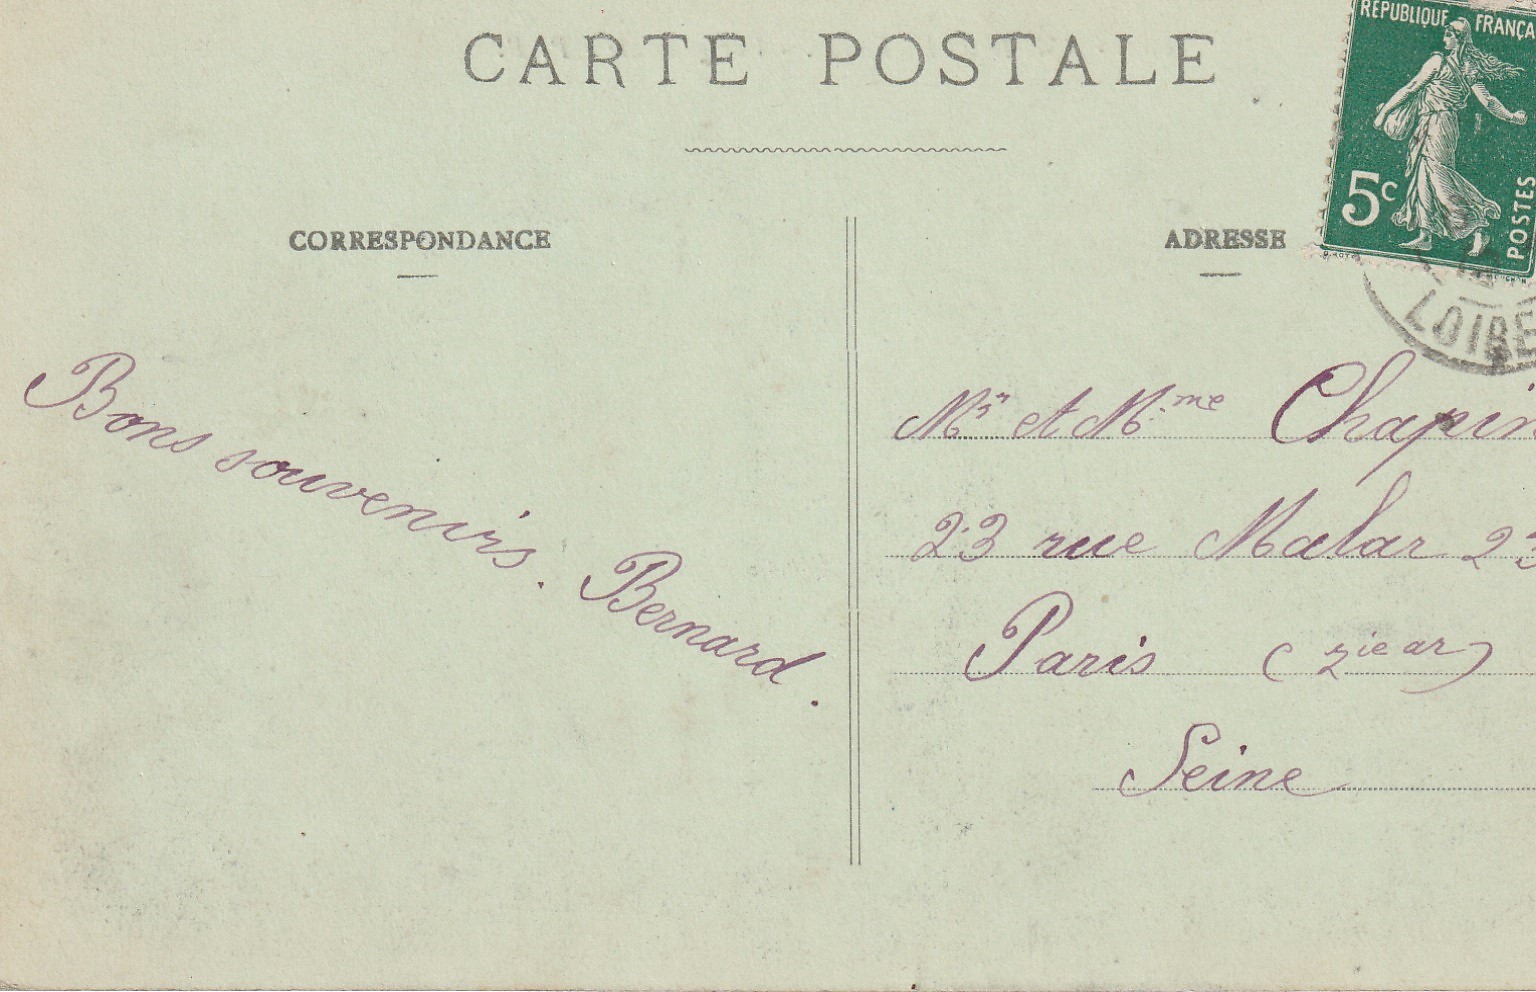 CARTE POSTALE
RÉPUBLIQUE FRANÇA
5c
POSTES
CORRESPONDANCE
ADRESSE
LOIRE
Bons souvenirs. Bernard.
Mr et Mme Chapin
23 rue Malar 23
Paris (7ie ar)
Seine